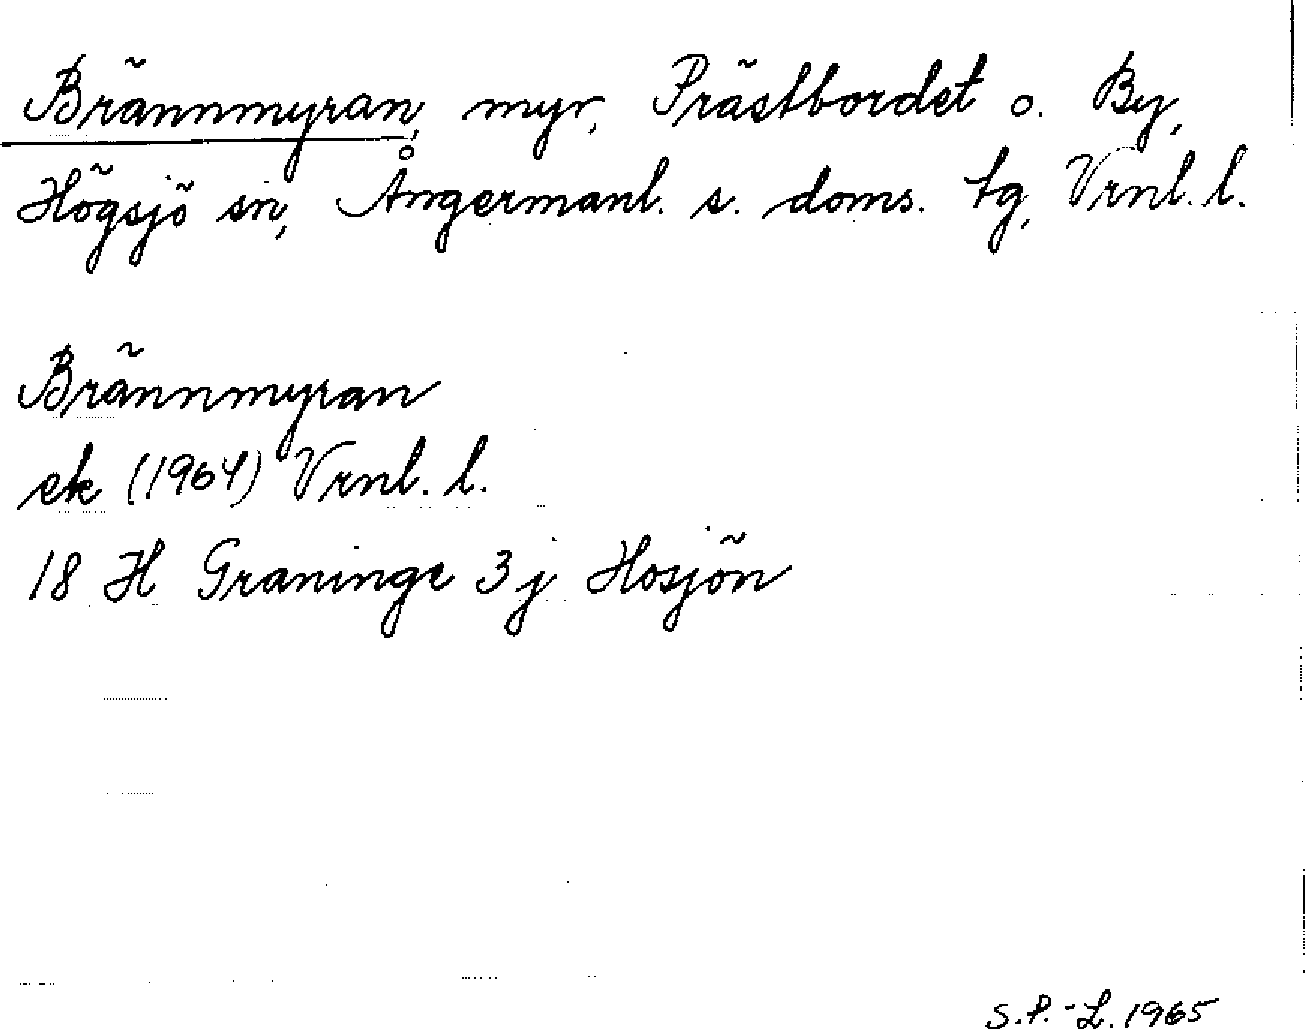 Brännmyran, myr, Prästbordet o. By,
Högsjö sn, Ångermanl. s. doms. tg, Vrnl. l.
Brännmyran
ek (1964) Vrnl. l.
18 H Graninge 3j Hosjön
S.P.-L. 1965